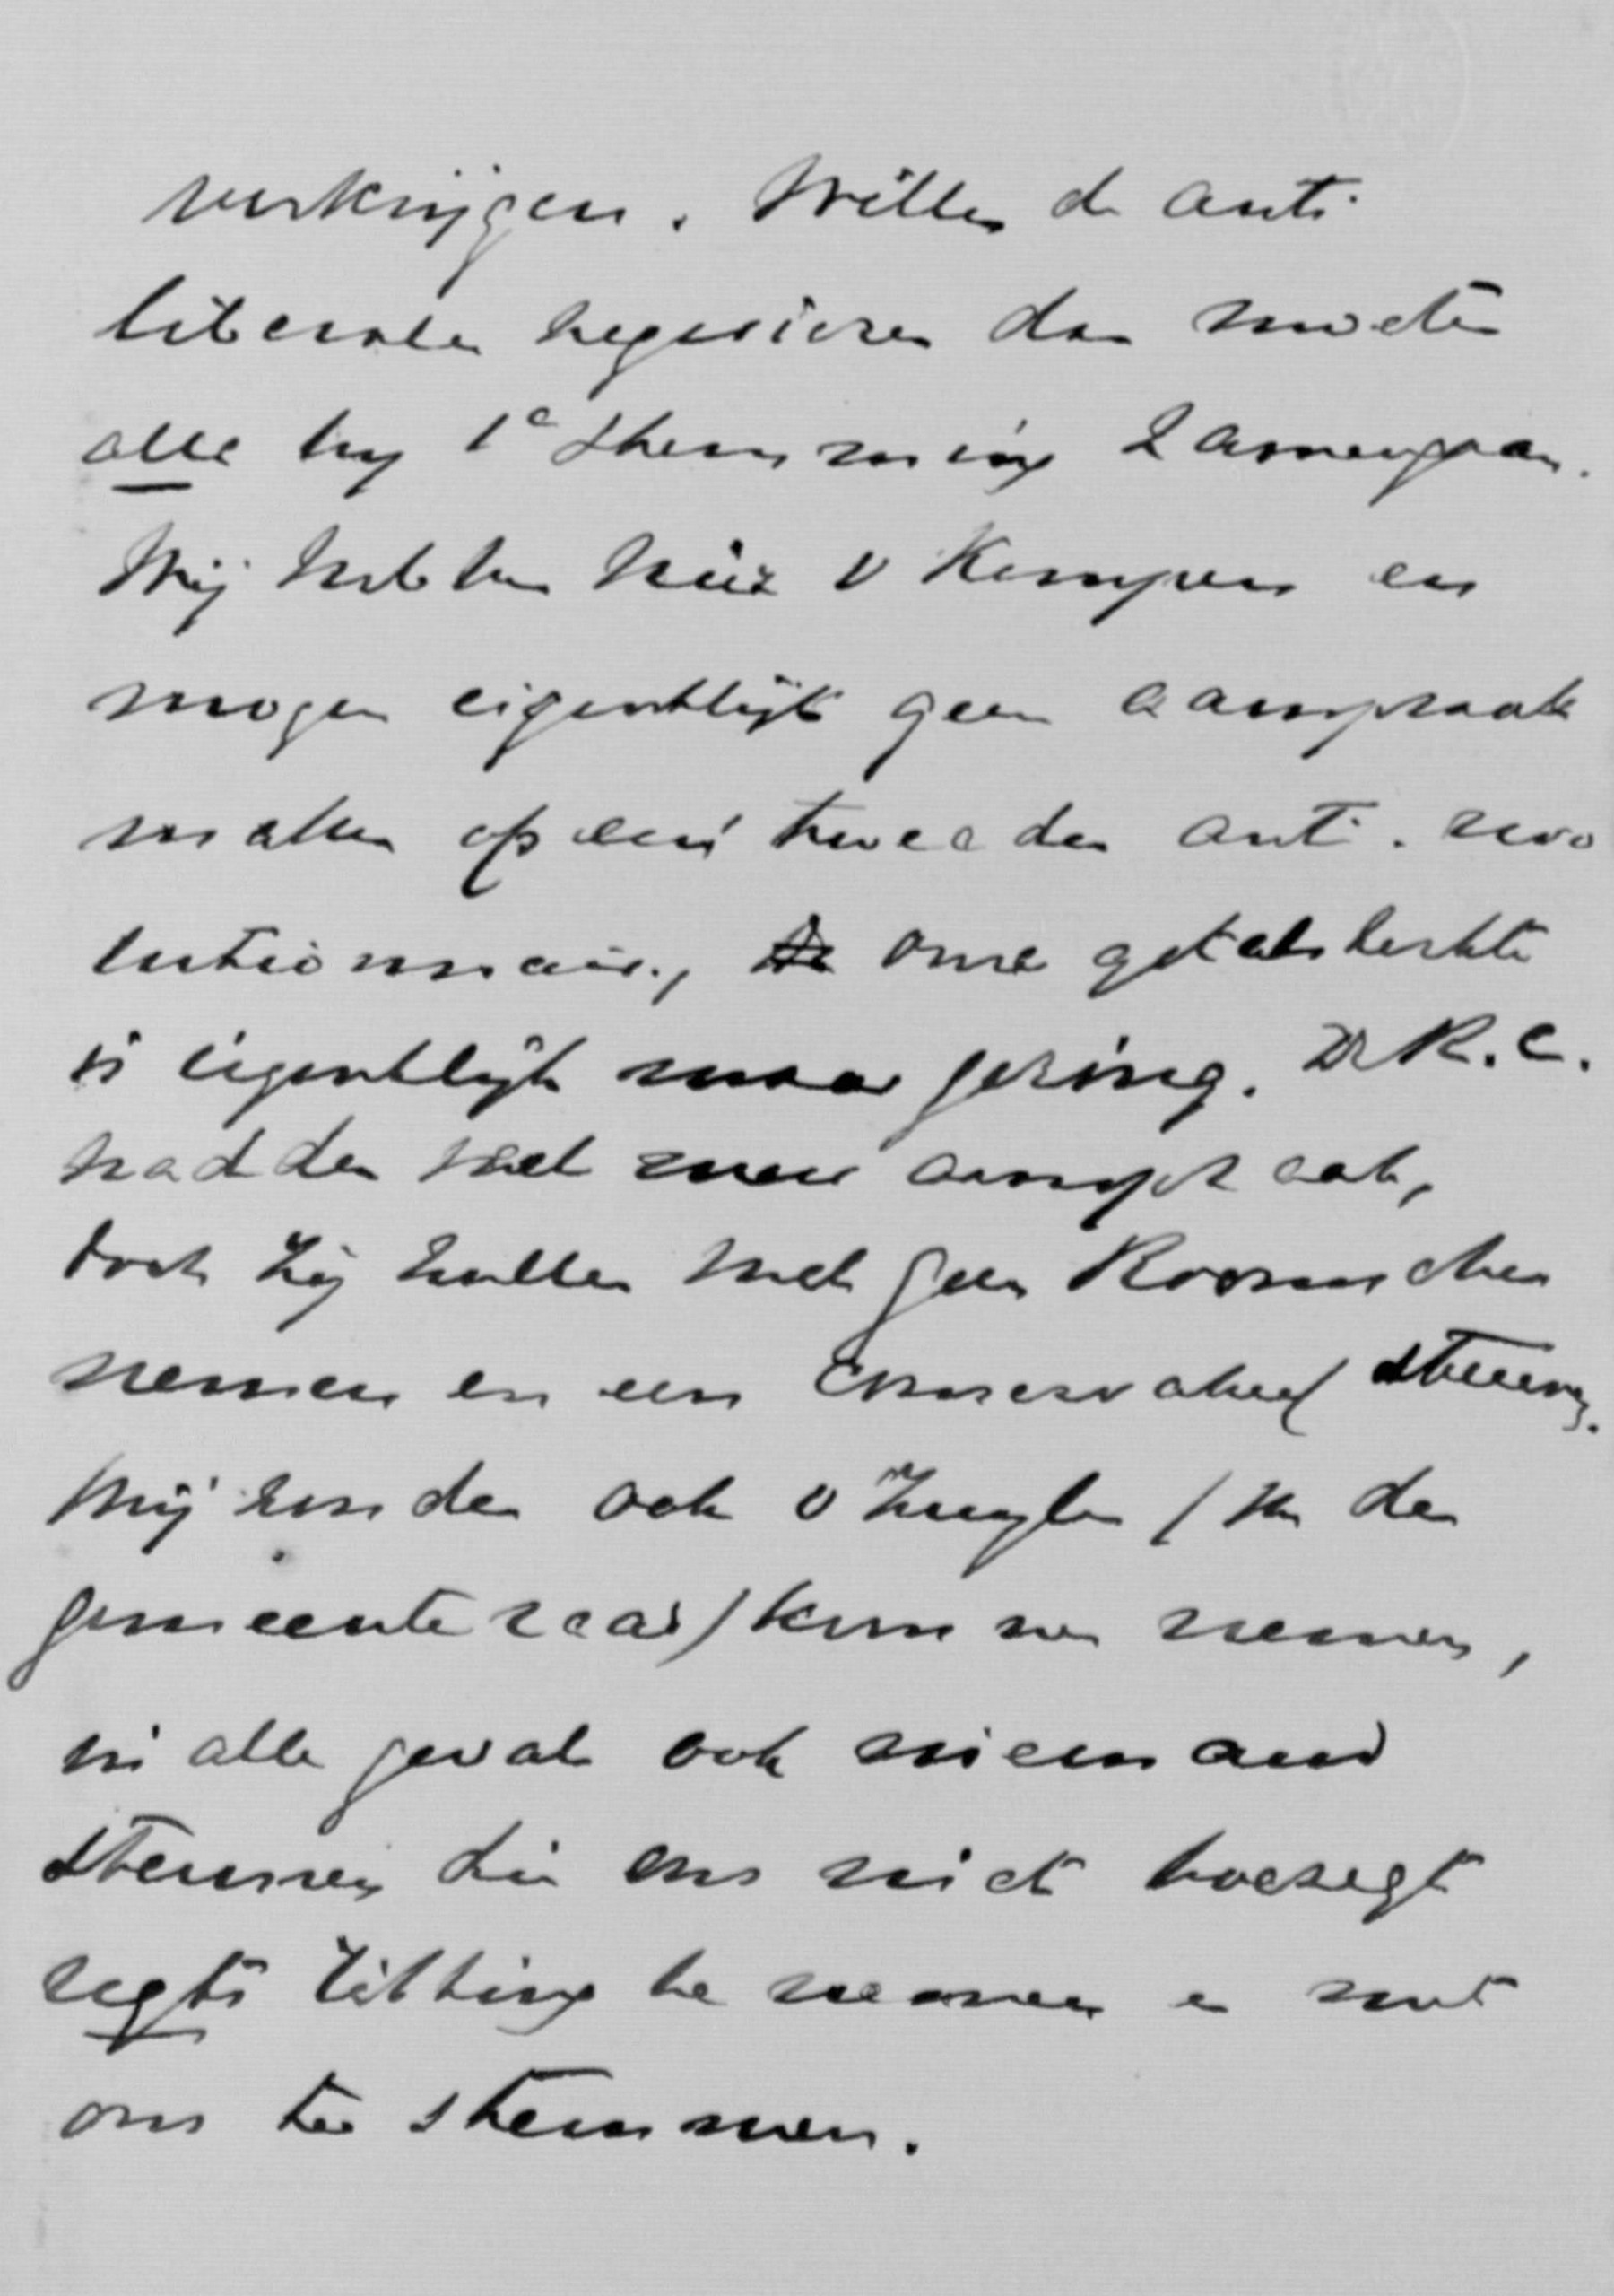 verkrijgen. Willen de anti
liberalen zegevieren dan moeten
alle bij 1e stemming zamengaan.
Wij hebben hier v Kempen en
mogen eigentlijk geen aanspraak
maken op een tweeden anti-revo
lutionnair, onze getalsterkte
is eigentlijk maar gering. De R.C.
hadden veel meer aanspraak,
doch zij zullen wel geen Roomschen
nemen en een Conservatief steunen.
Wij zouden ook v Zuylen (in den
gemeenteraad) kunnen nemen,
in alle geval ook niemand
steunen die ons niet toezegt
regts zitting te nemen en met
ons te stemmen.